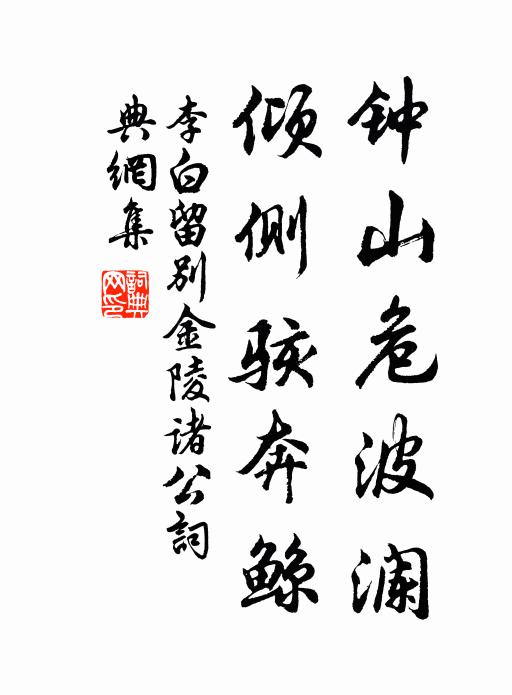 钟山危波澜
倾侧骇奔鲸
李白留别金陵诸公詞
典網集
詞典
网印